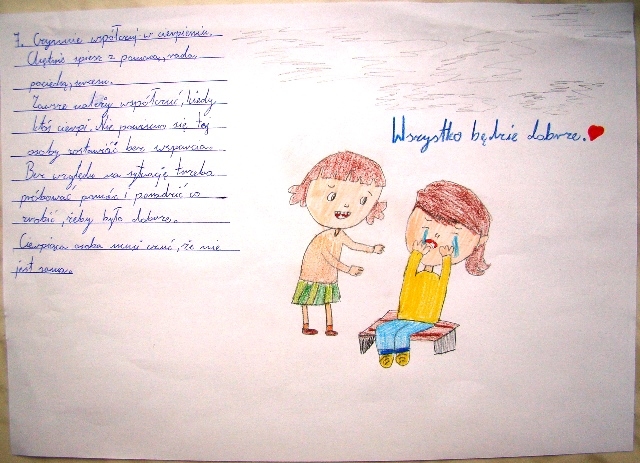 7. Czynnie współczuj w cierpieniu.
Chętnie spiesz z pomocą, radą
pociechą, sercem.
Zawsze należy współczuć, kiedy
ktoś cierpi. Nie powinno się tej
osoby zostawiać bez wsparcia.
Bez względu na sytuację trzeba
próbować pomóc i poradzić co
zrobić, żeby było dobrze.
Cierpiąca osoba musi czuć, że nie
jest sama.
Wszystko będzie dobrze.